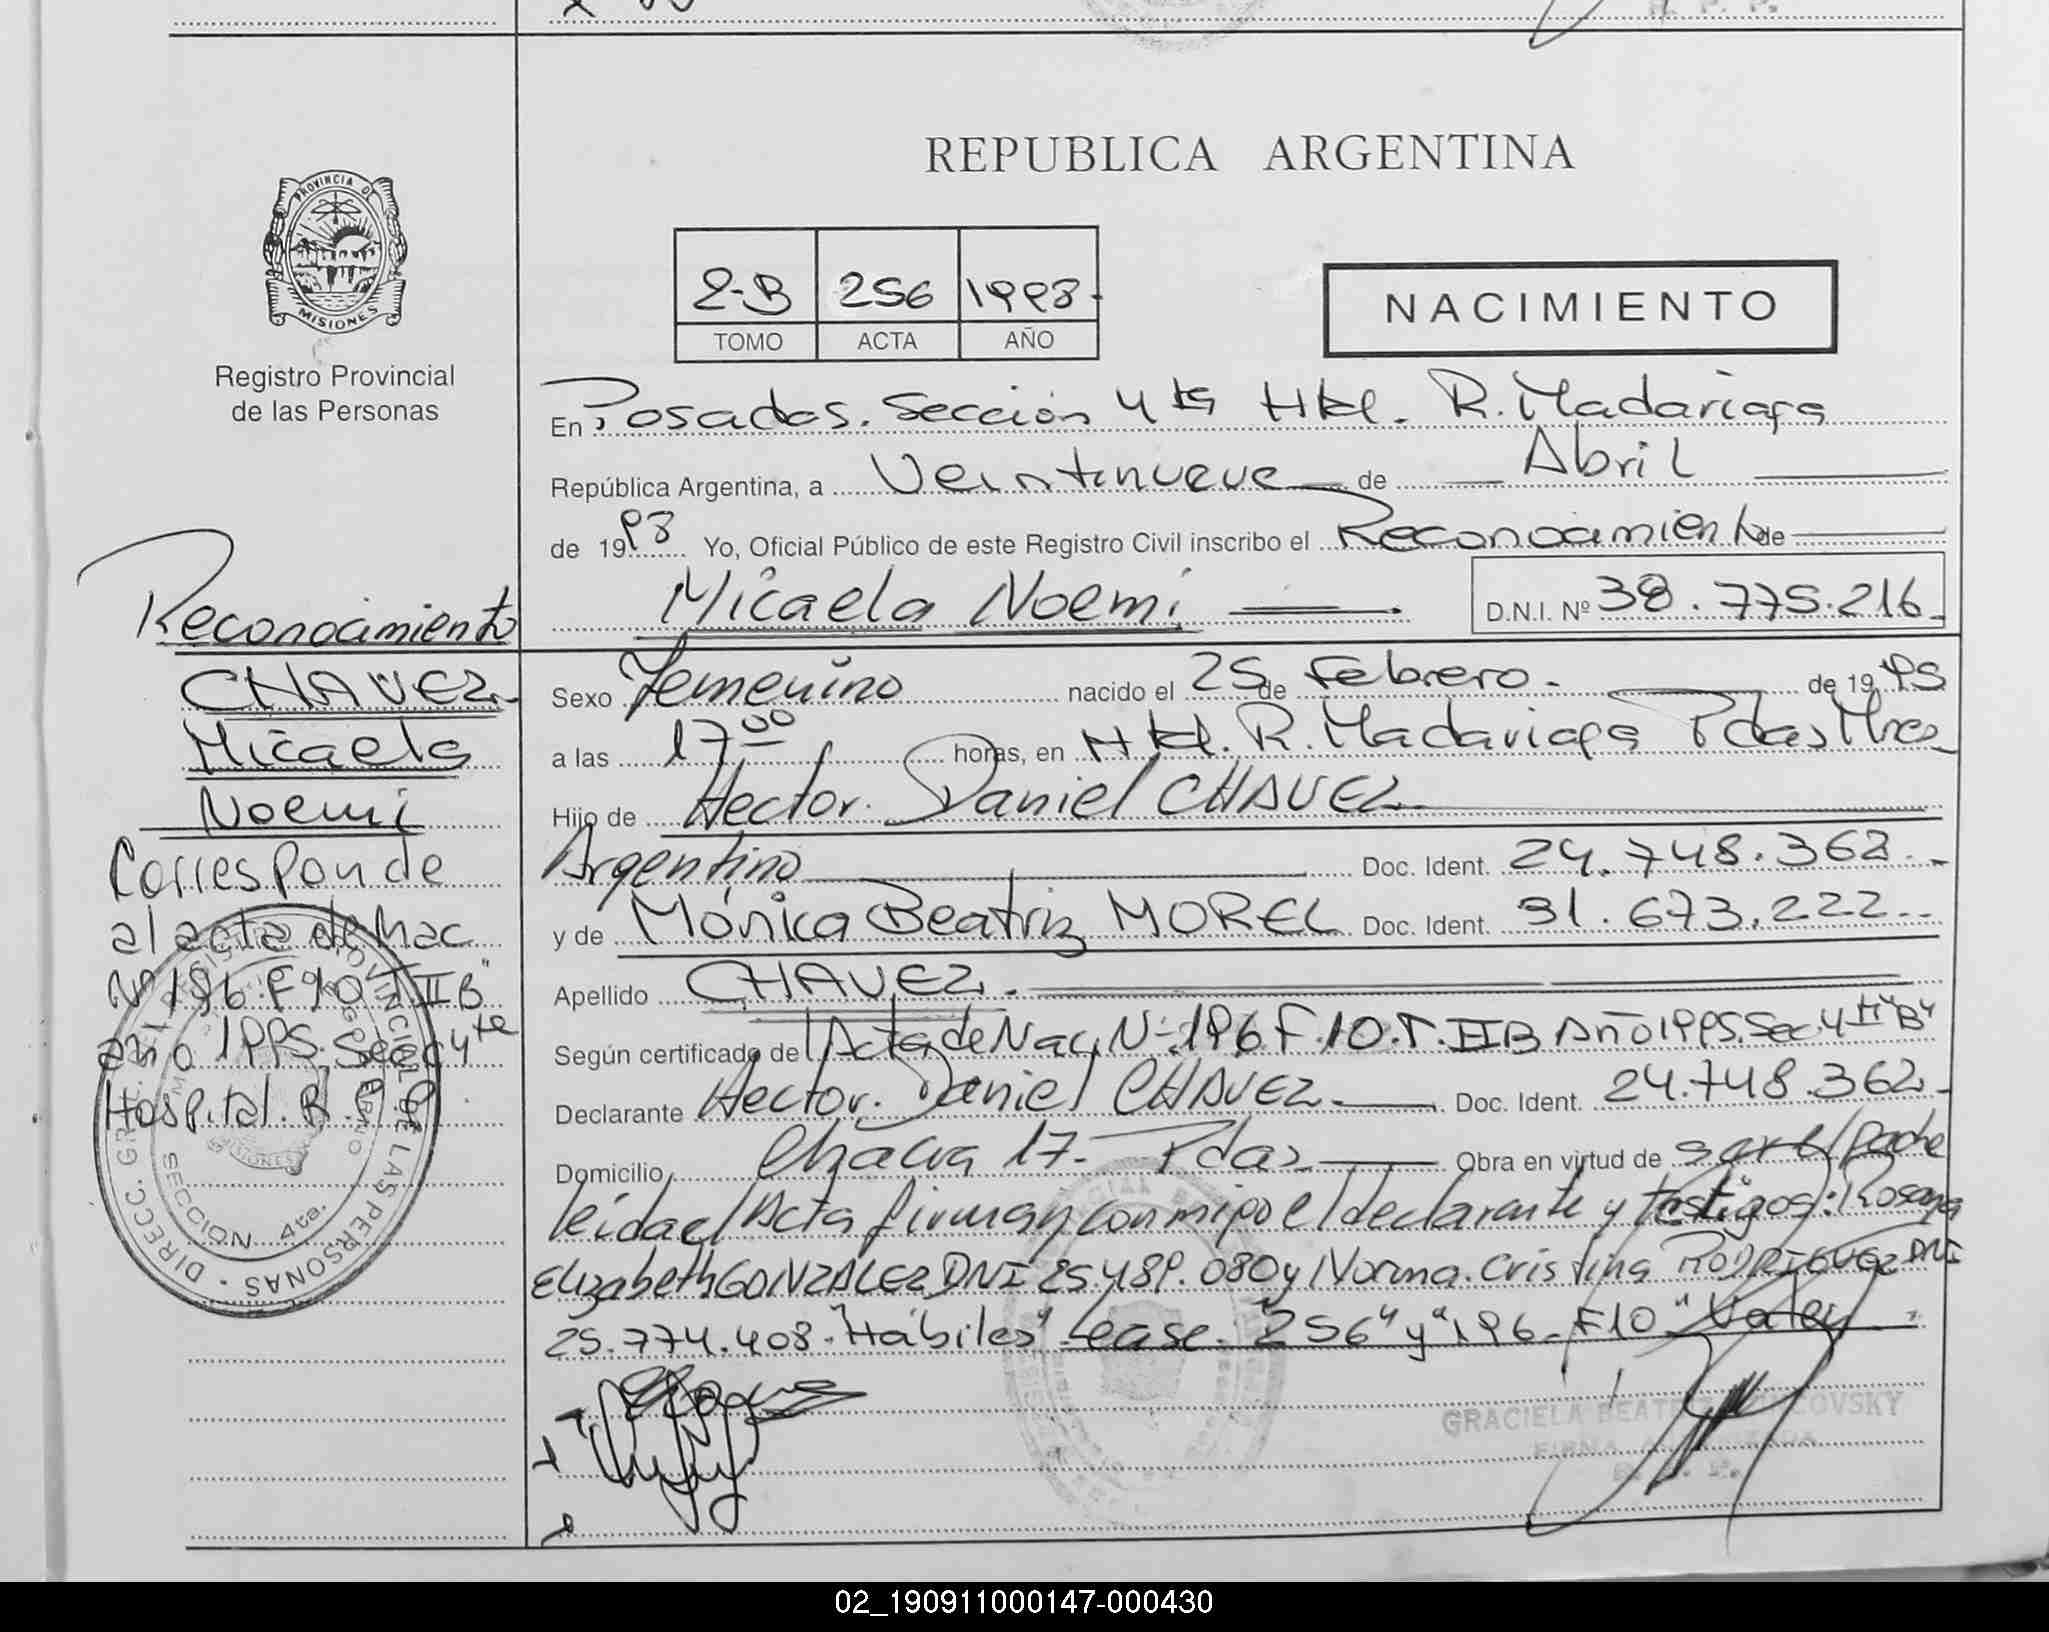 REPUBLICA ARGENTINA
PROVINCIA DE
MISIONES
Registro Provincial
de las Personas
2-B 256 1998
TOMO ACTA AÑO
NACIMIENTO
En Posadas. Sección 4ta Htal. R. Madariaga
República Argentina, a Veintinueve de Abril
de 1998 Yo, Oficial Público de este Registro Civil inscribo el Reconocimiento de
Micaela Noemi
D.N.I. Nº 38.775.216
Reconocimiento
CHAVEZ
Micaela
Noemi
Corresponde
al acta de Nac
Nº 196 F 10 T IIB
año 1995. Secc 4ta
Hospital. R.
Sexo Femenino nacido el 25 de Febrero. de 1995
a las 17 00 horas, en Htal. R. Madariaga Pdas Mnes
Hijo de Hector. Daniel CHAVEZ
Argentino Doc. Ident. 24.748.362
y de Mónica Beatriz MOREL Doc. Ident. 31.673.222
Apellido CHAVEZ.
Según certificado de Acta de Nac. Nº 196 F.10.T. IIB Año 1995. Sec. 4ta "B"
Declarante Hector. Daniel CHAVEZ. Doc. Ident. 24.748.362
Domicilio Chacra 17- Pdas Obra en virtud de ser el padre
leida el Acta firman conmigo el declarante y testigos: Rosana
Elizabeth GONZALEZ DNI 25.489.080 y Norma. Cristina RODRIGUEZ DNI
25.774.408. "Hábiles" Lease. "256" y "196- F10" Valen
DIRECC. GRAL. DEL REGISTRO PROVINCIAL DE LAS PERSONAS
SECCION 4ta.
MISIONES
GRACIELA BEATRIZ
02_190911000147-000430